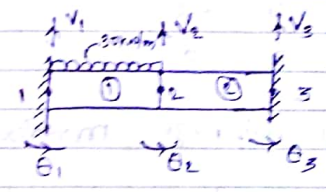 V₁ V₂ V₃
35kN/m
1 ① 2 ② 3
θ₁ θ₂ θ₃